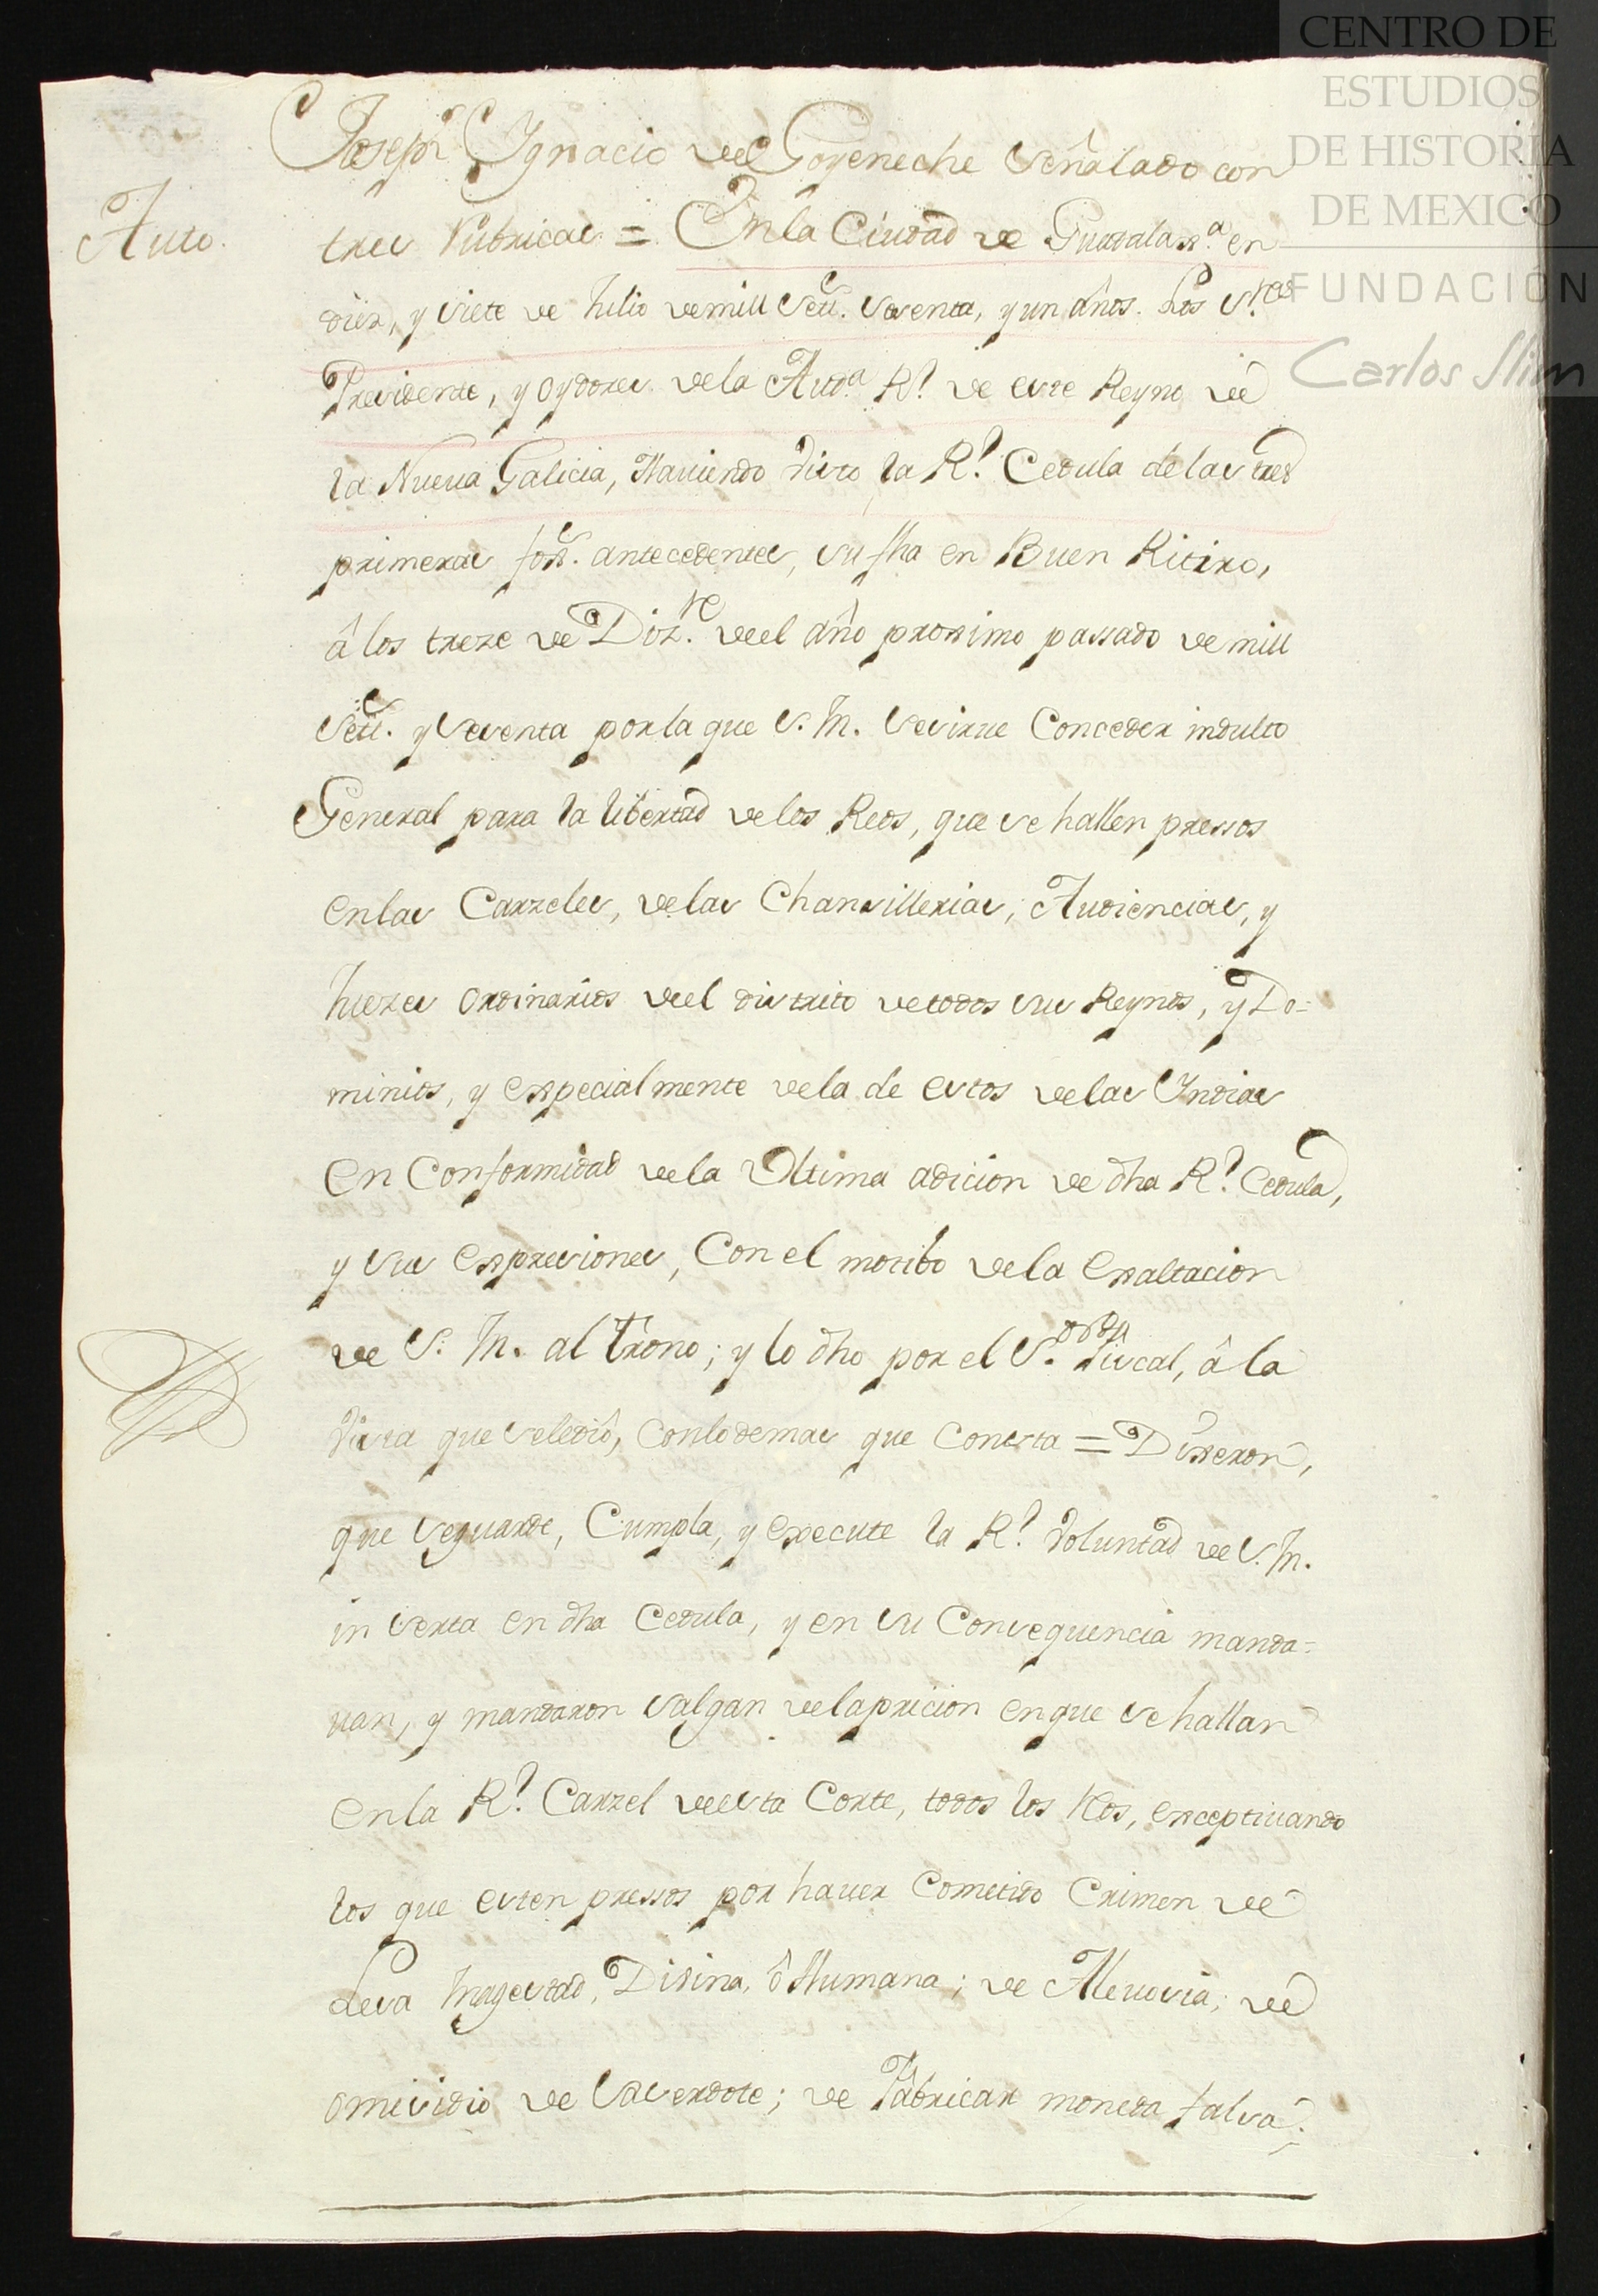 CENTRO DE
ESTUDIOS
DE HISTORIA
DE MEXICO
FUNDACIÓN
Carlos Slim
Joseph Ygnacio de Goyeneche señalado con
Auto.
tres rubricas = En la Ciudad de Guadalax.ª en
diez, y siete de Julio de mill Setz. Sesenta, y un años. Los S.res
Presidente, y oydores de la Aud.ª R.l de este Reyno de
la Nueua Galicia, Hauiendo visto la R.l Cedula de las tres
primeras fox.s antecedentes, su fha en Buen Ritiro,
â los treze de Diz.re del año proximo passado de mill
Setz. y Sesenta por la que S. M. se sirue Conceder indulto
General para la libertad de los Reos, que se hallen pressos
en las Carzeles, de las Chansillerias, Audiencias, y
Juezes ordinarios del distrito de todos sus Reynos, y Do=
minios, y expecialmente de la de estos de las Yndias
en Conformidad de la Vltima adicion de dha R.l Cedula,
y sus expresiones, Con el motibo de la exaltacion
de S. M. al trono; y lo dho por el S.or Fiscal, â la
vista que se le diô, con lo demas que Consta = Dixeron,
que se guarde, Cumpla, y execute la R.l Voluntad de S. M.
in serta en dha Cedula, y en su Consequencia manda=
uan, y mandaron salgan de la pricion en que se hallan
en la R.l Carzel de esta Corte, todos los Reos, exceptiuando
los que esten pressos por hauer Cometido Crimen de
Lesa Magestad, Divina, ô Humana; de Aleuosia; de
omisidio de Saserdote; de Fabricar moneda falsa;